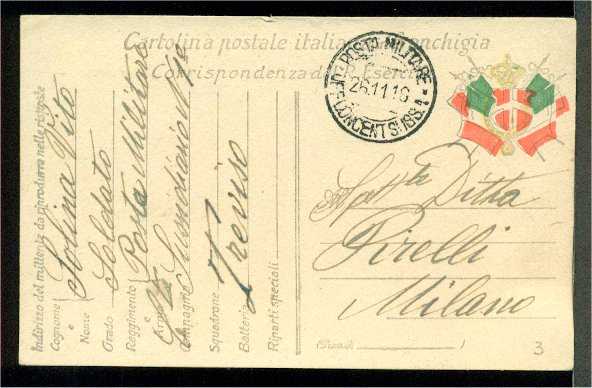 Cartolina postale italiana in franchigia
Corrispondenza del R. Esercito
POSTA MILITARE
26.11.16
CONCENT SUSS.A
Indirizzo del mittente da riprodurre nelle risposte
Cognome e Nome Solina Vito
Grado Soldato
Reggimento Posta Militare
e Arma
Compagnia
Squadrone Treviso
Batteria
Reparti speciali
Ditta
Pirelli
Milano
3